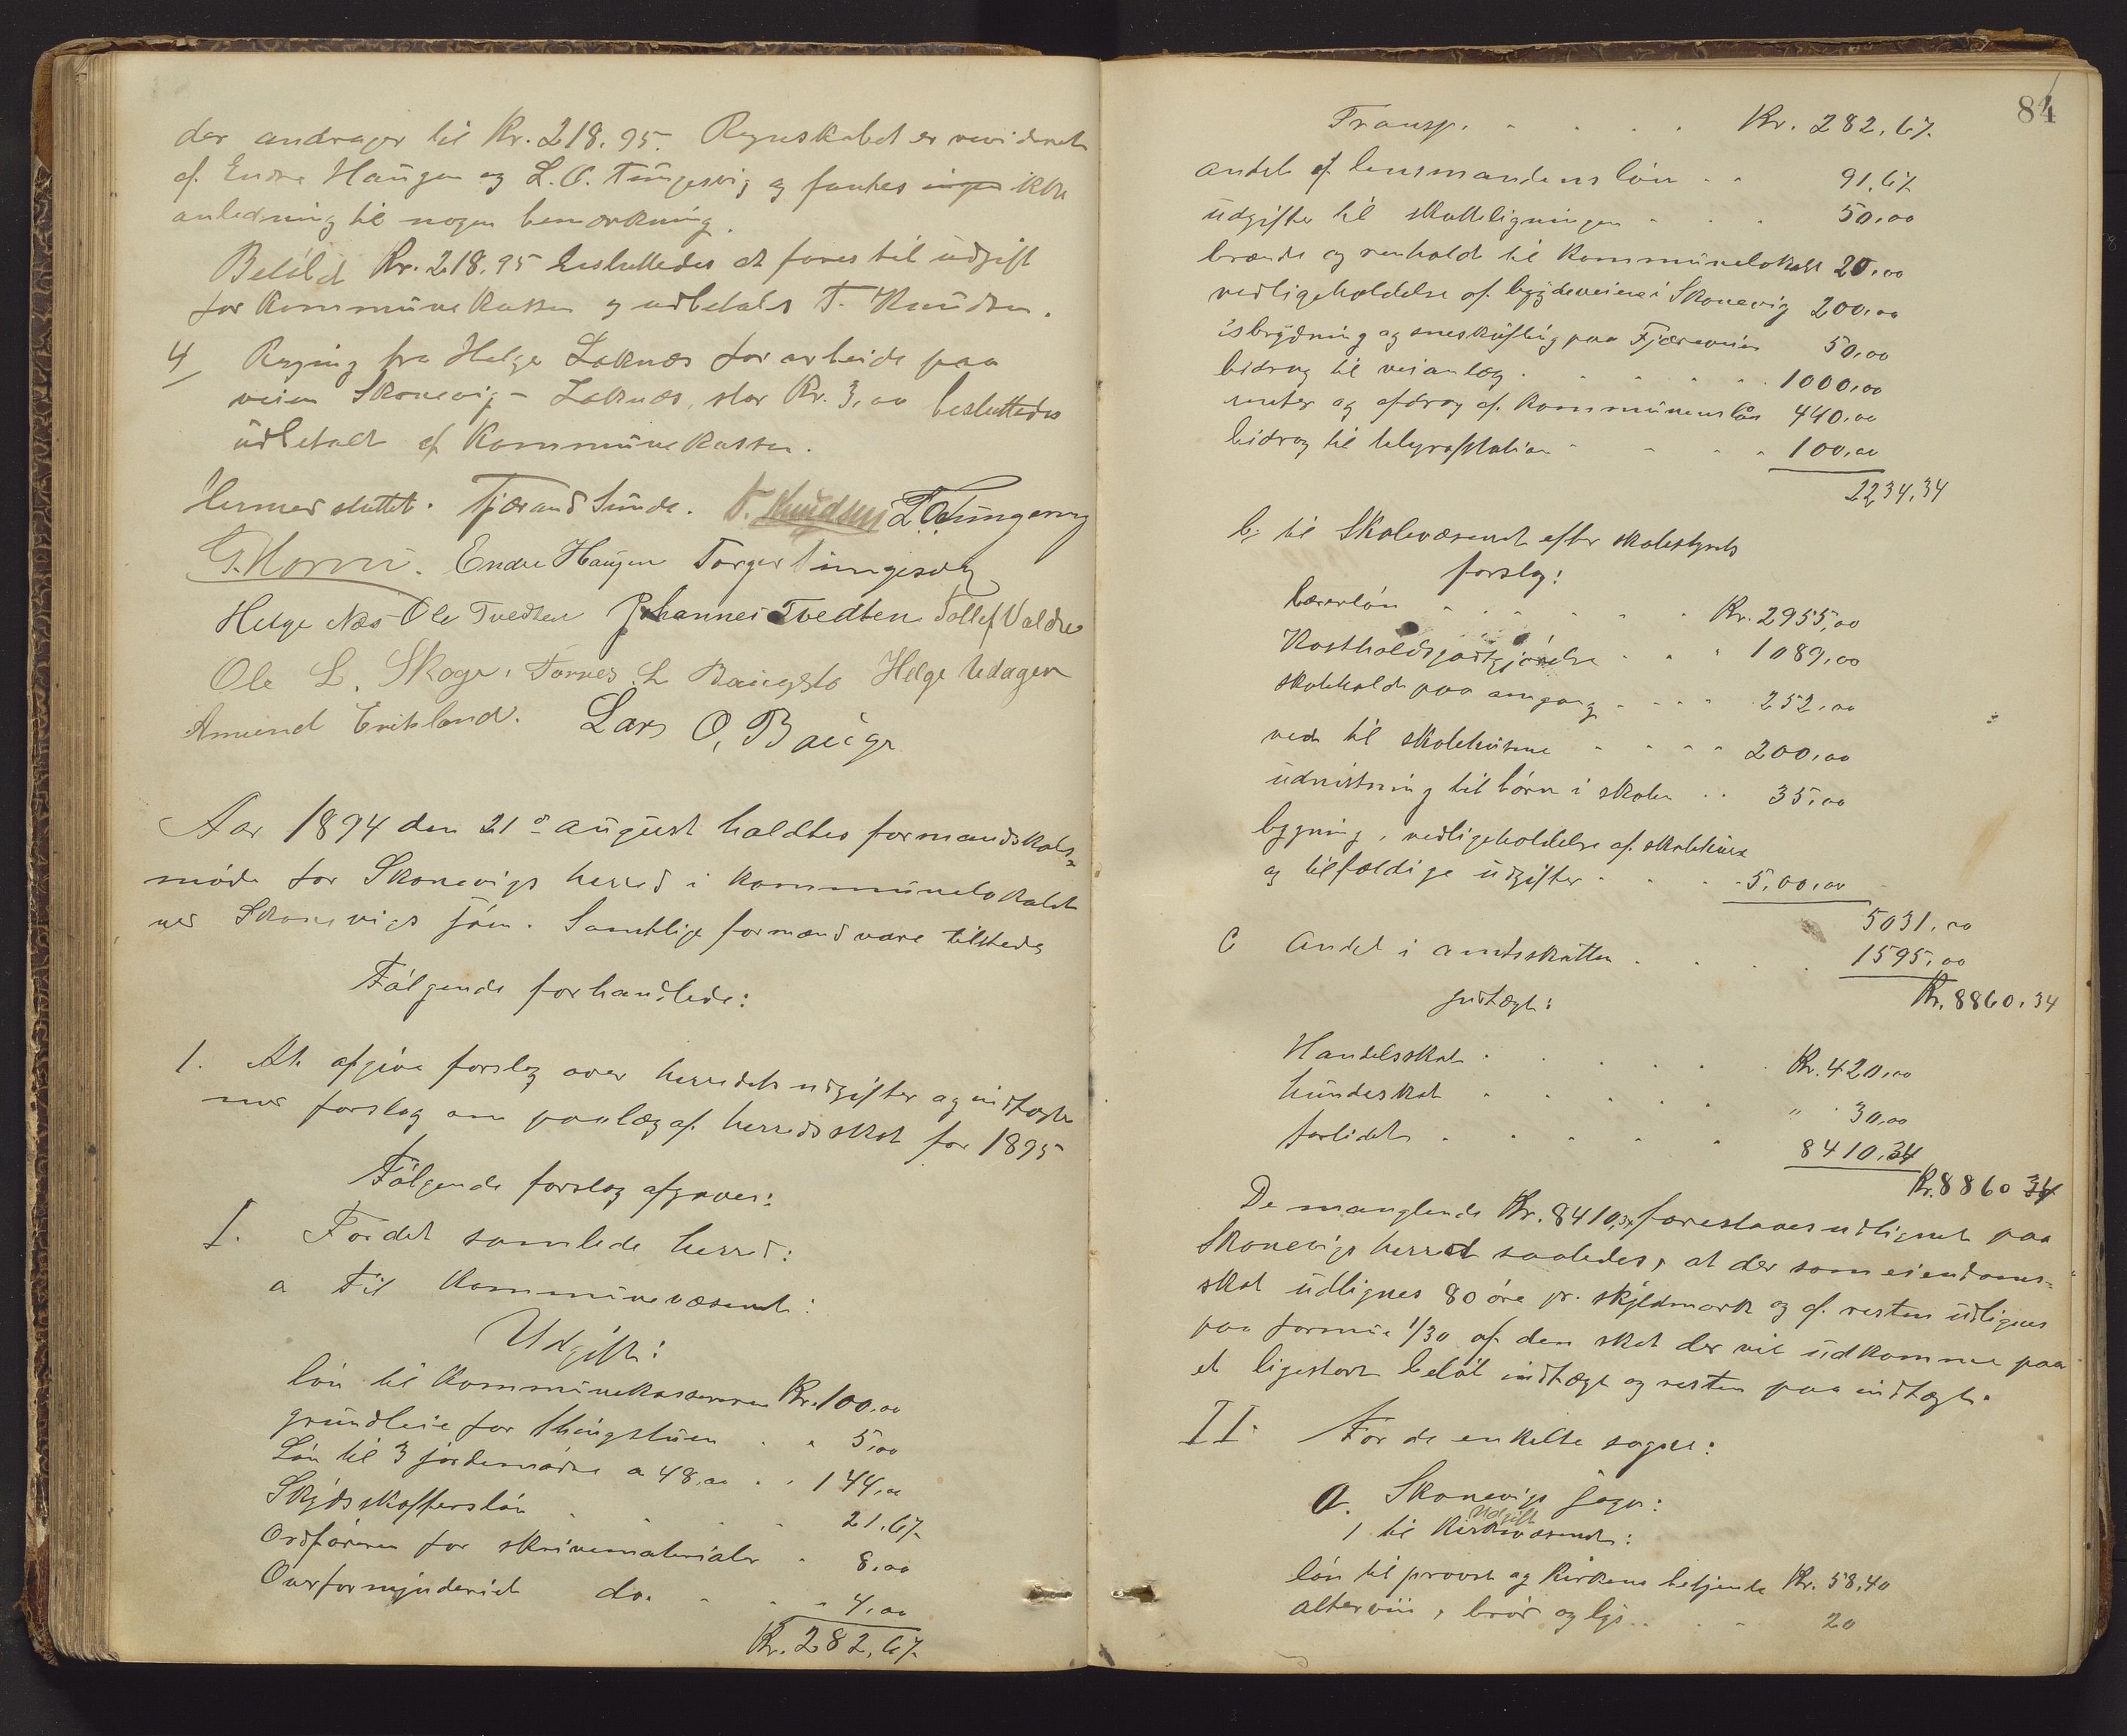 der andrager til Kr. 218.95. Regnskabet er revideret
af Endre Haugen og L. O. Tungesvig og fantes ingen ikke
anledning til nogen bemærkning.
Beløbet Kr. 218,95 besluttedes at føres til udgift
for kommunekassen og udbetales T. Knudsen.
4/ Regning fra Helge Løknæs for arbeide paa
veien Skonevig - Løknæs, stor Kr. 3,00 besluttedes
udbetalt af kommunekassen.
Hermed sluttet. Tjærand Sunde. T. Knudsen L. O. Tungesvig
Endre Haugen Torger Tungesvig
Helge Næs Ole Tvedten Johannes Tvedten Tollef Valdre
Ole L. Skoge. Tørres L Baugstø Helge Udagen
Amund Eriksland. Lars O, Bauge
Aar 1894 den 21de august holdtes formandskabs-
møde for Skonevigs herred i kommunelokalet
ved Skonevigs sjøen. Samtlige formænd vare tilstede
Følgende forhandledes:
1. At afgive forslag over herredets udgifter og indtægter
med forslag om paalæg af herredsskat for 1895
Følgende forslag afgaves:
I. For det samlede herred:
a til kommunevæsenet:
Udgift:
løn til kommunekassereren Kr. 100,00
grundleie for thingstuen . . 5,00
Løn til 3 jordemødre a 48,00 . . 144,00
Skydsskafferløn . . . 21,67
Ordføreren for skrivematerialer . 8,00
Overformynderiet do. . . . 4,00
Kr. 282,67
84
Transp. . . . . Kr. 282,67
andel af lensmandens løn . . 91,67
udgifter til skatteligningen . . . 50,00
brænde og renhold til kommunelokalet 20,00
vedligeholdelse af bygdeveiene i Skonevig 200,00
isbrydning og sneskufling paa Fjæreveien 50,00
bidrag til veianlæg . . . . . . 1000,00
renter og afdrag af kommunens lån 440,00
bidrag til telegrafstation . . . . 100,00
2234,34
b, til Skolevæsenet efter skolestyrets
forslag:
lærerløn . . . . . . Kr. 2955,00
Kostholdsgodtgjørelse . . . 1089,00
skolehold paa omgang . . . . 252,00
ved til skolehusene . . . . 200,00
udnistning til børn i skolen . . 35,00
bygning, vedligeholdelse af skolehuse
og tilfældige udgifter . . . . 5,00,00
5031,00
C Andel i amtsskatten . . . . 1595,00
Kr. 8860,34
Indtægt:
Handelsskat . . . . . Kr. 420,00
hundeskat . . . . . " 30,00
forlidet . . . . . 8410,34
Kr. 8860 34
De manglende Kr. 8410,34 foreslaaes udlignet paa
Skonevigs herred saaledes, at der som eiendoms-
skat udlignes 80 øre pr. skyldmark og af resten udlignes
paa formue 1/30 af den skat der vil udkomme paa
et ligestort beløb indtægt og resten paa indtægt.
II. For de enkelte sogne:
a. Skonevigs sogn:
Udgift
1 til Kirkevæsenet:
løn til provst og kirkens betjente Kr. 58,40
altervin, brød og lys . . . . 20